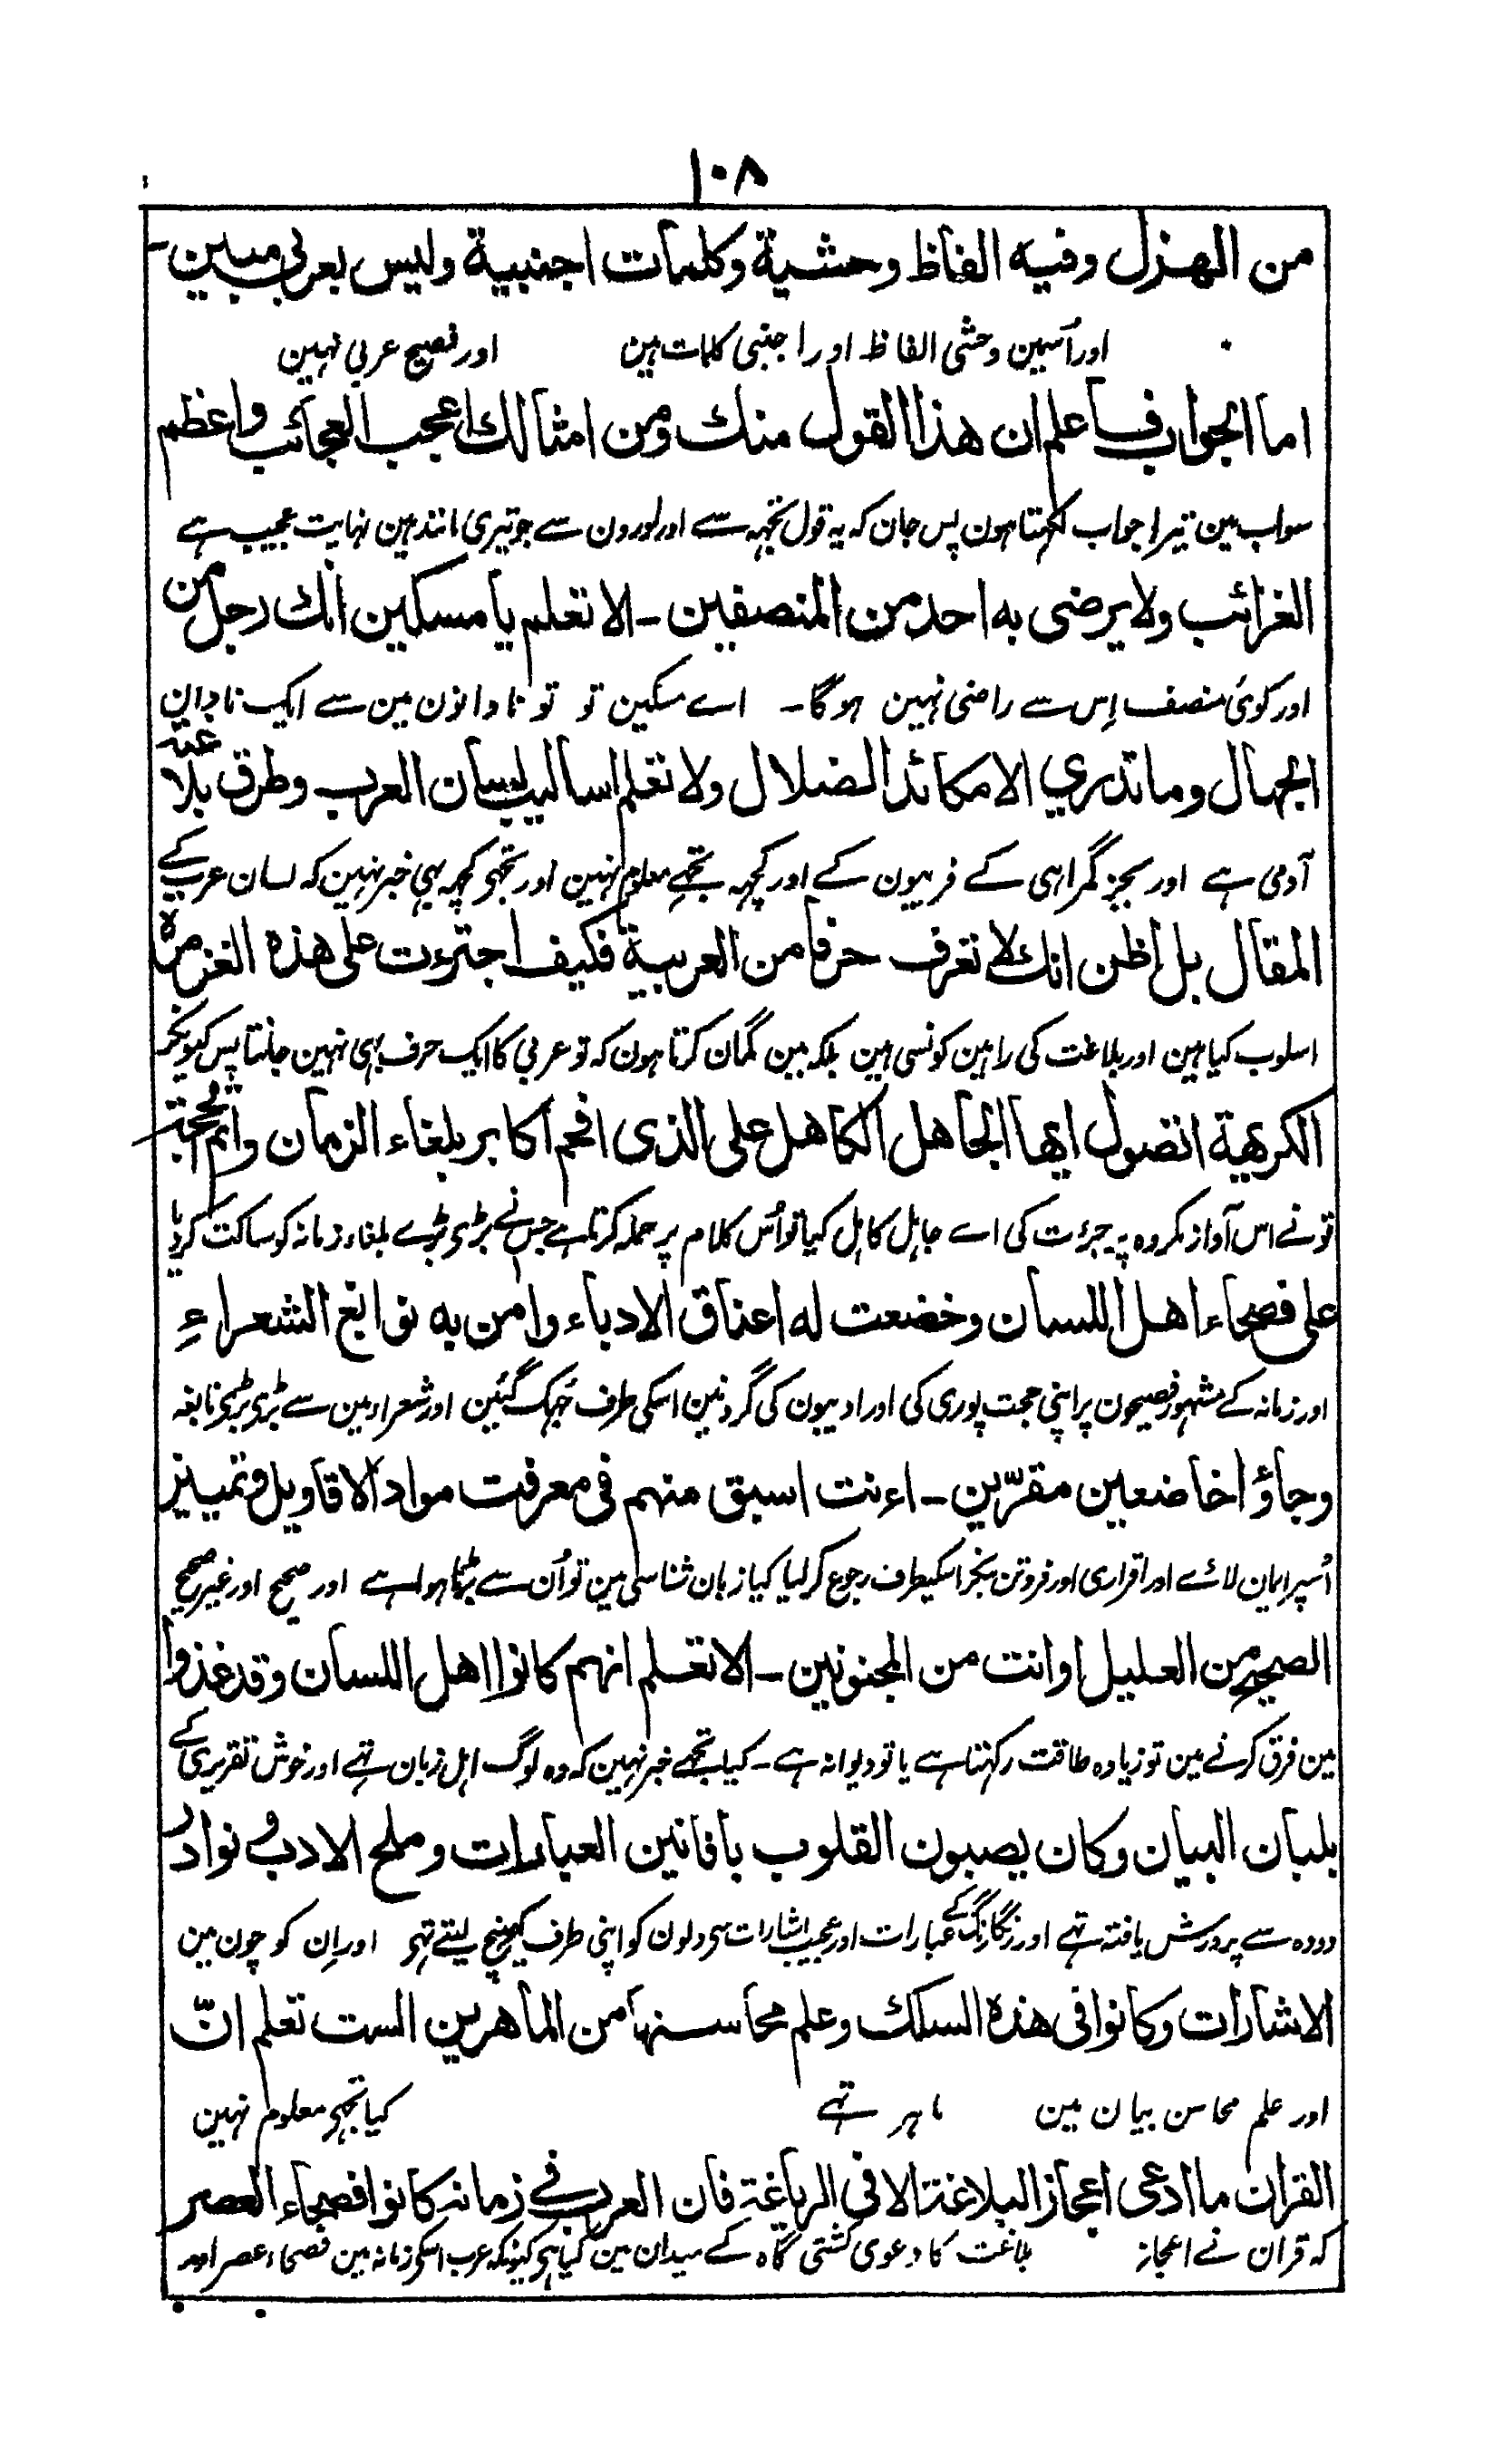 ۱۰۸
من الهزل وفيه الفاظ وحشية وكلمات اجنبية وليس بعربي مبين-
اور اُسمین وحشی الفاظ اور اجنبی کلمات ہین اور فصیح عربی نہین
اما الجواب فاعلم ان هذا القول منك ومن امثالك اعجب العجائب واعظم
سو اب مین تیرا جواب لکھتا ہون پس جان کہ یہ قول تجھہ سے اور اورون سے جو تیری مانند ہین نہایت عجیب ہے
الغرائب ولا يرضى به احد من المنصفين - الا تعلم يا مسكين انك رجل من
اور کوئی منصف اِس سے راضی نہین ہوگا - اے مسکین تو تو نادانون مین سے ایک نادان
الجهال وما تدري الا مكائد الضلال ولا تعلم اساليب لسان العرب وطرق بلاغة
آدمی ہے اور بجز گمراہی کے فریبون کے اور کچھہ تجھے معلوم نہین اور تجھی کچھہ بھی خبر نہین کہ لسان عرب کے
المقال بل اظن انك لا تعرف حرفا من العربية فكيف اجترءت على هذه الغزمرة
اسلوب کیا ہین اور بلاغت کی راہین کونسی ہین بلکہ مین گمان کرتا ہون کہ تو عربی کا ایک حرف بھی نہین جانتا پس کیونکر
الكريهة اتصول ايها الجاهل الكاهل على الذى افحم اكابر بلغاء الزمان واتم الحجة
تو نے اس آواز مکروہ پر جرءت کی اے جاہل کاہل کیا تو اُس کلام پر حملہ کرتا ہے جس نے بڑی بڑے بلغاء زمانہ کو ساکت کر دیا
على فصحاء اهل اللسان وخضعت له اعناق الادباء وامن به نوابغ الشعراءِ
اور زمانہ کے مشہور فصیحون پر اپنی حجت پوری کی اور ادیبون کی گردنین اسکی طرف جُہک گئین اور شعراء مین سے بڑی بڑی نابغہ
وجاؤا خاضعين مقرّين - اءنت اسبق منهم فى معرفت مواد الاقاويل وتمييز
اُسپر ایمان لائے اور اقراری اور فروتن بنکر اسکیطرف رجوع کر لیا کیا زبان شناسی مین تو اُن سے بڑہا ہوا ہے اور صحیح اور غیر صحیح
الصحيح من العليل او انت من المجنونين - الا تعلم انهم كانوا اهل اللسان وقد غذوا
مین فرق کرنے مین تو زیادہ طاقت رکھتا ہے یا تو دیوانہ ہے - کیا تجھے خبر نہین کہ وہ لوگ اہل زبان تھے اور خوش تقریری کے
بلبان البيان وكان يصبون القلوب بافانين العبارات وملح الادب ونوادر
دودہ سے پرورش یافتہ تھے اور رنگا رنگ کے عبارات اور عجیب اشارات سی دلون کو اپنی طرف کھینچ لیتے تھی اور اِن کوچون مین
الاشارات وكانوا فى هذه السكك وعلم محاسنها من الماهرين الست تعلم انّ
اور علم محاسن بیان مین ماہر تھے کیا تجھی معلوم نہین
القران ما ادعى اعجاز البلاغة الا فى الرياغة فان العرب فى زمانه كانوا فصحاء العصر
کہ قران نے اعجاز بلاغت کا دعوی کشتی گاہ کے میدان مین کیا ہی کیونکہ عرب اسکی زمانہ مین فصحاء عصر اور